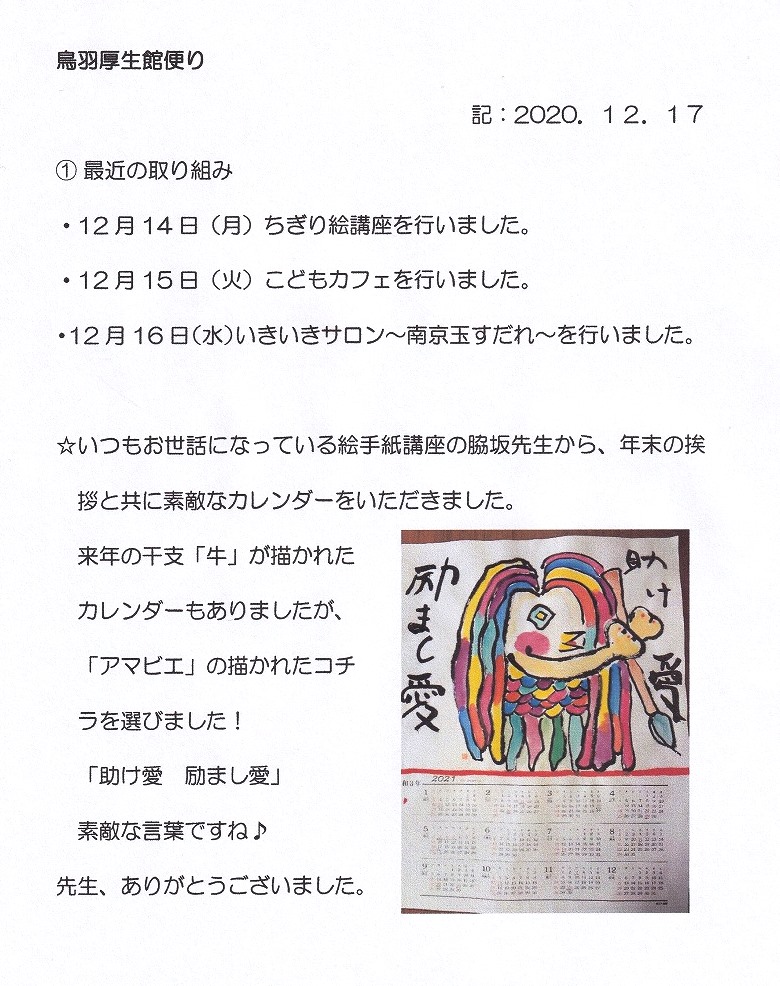 鳥羽厚生館便り
記：2020．１２．１７
① 最近の取り組み
・12月14日（月）ちぎり絵講座を行いました。
・12月15日（火）こどもカフェを行いました。
・12月16日（水）いきいきサロン～南京玉すだれ～を行いました。
☆いつもお世話になっている絵手紙講座の脇坂先生から、年末の挨
拶と共に素敵なカレンダーをいただきました。
来年の干支「牛」が描かれた
カレンダーもありましたが、
「アマビエ」の描かれたコチ
ラを選びました！
「助け愛　励まし愛」
素敵な言葉ですね♪
先生、ありがとうございました。
助け愛
励まし愛
2021
1 2 3 4
5 6 7 8
9 10 11 12